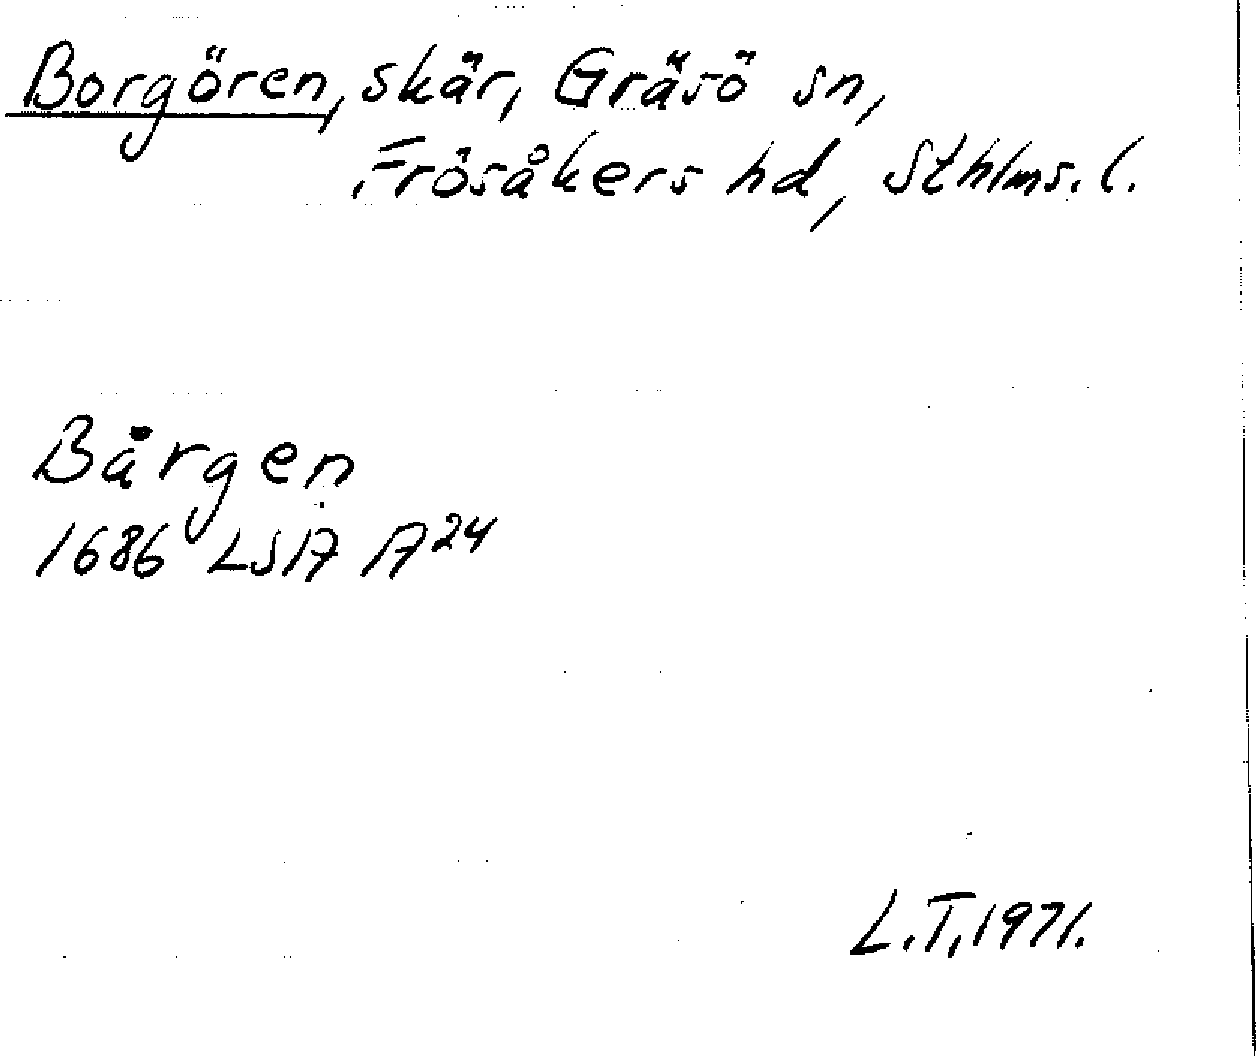 Borgören, skär, Gräsö sn,
Frösåkers hd, Sthlms. l.
Bårgen
1686 LSA A24
L.T. 1971.